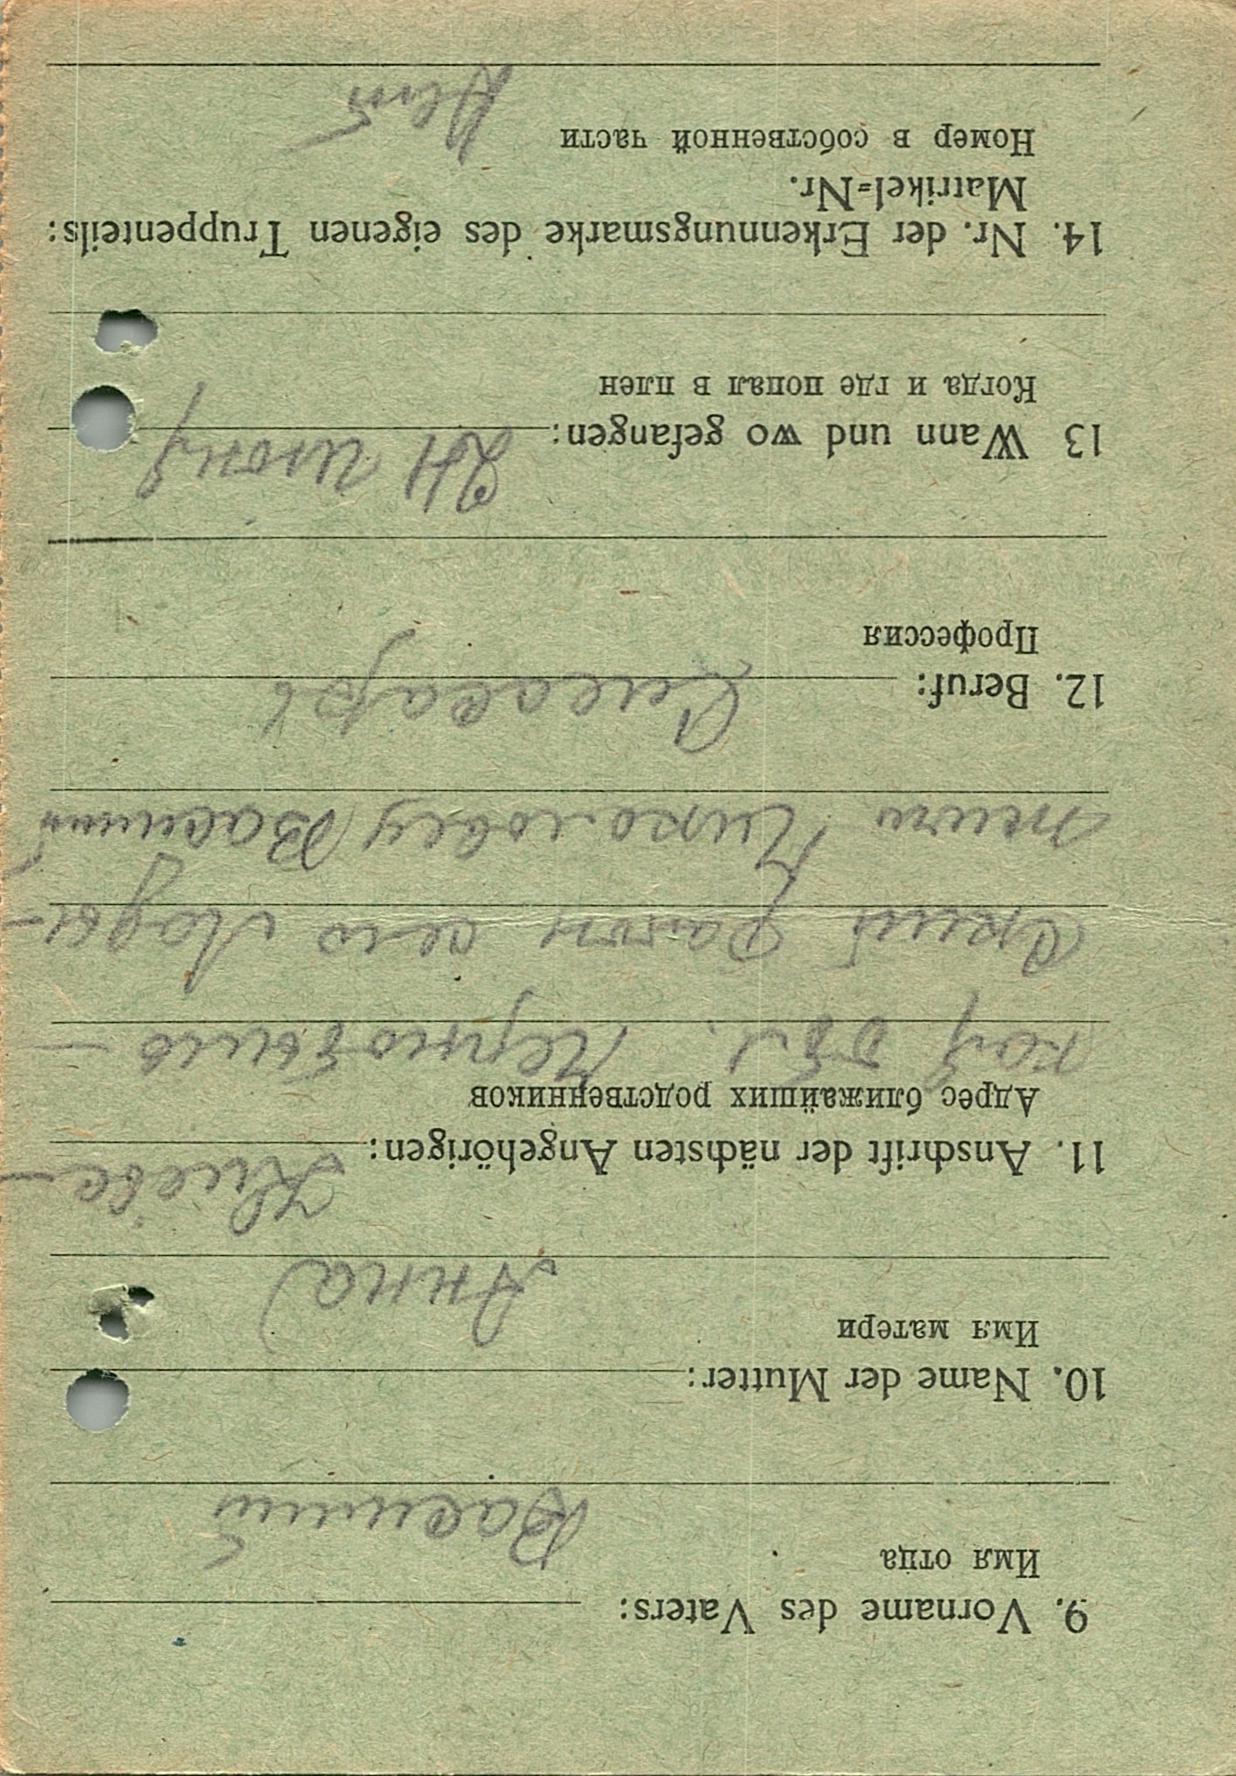 9. Vorname des Vaters:
Имя отца
Василий
10. Name der Mutter:
Имя матери
Анна
11. Anschrift der nächsten Angehörigen: Киевс-
Адрес ближайших родственников
кой обл. Чернобыль-
ский район село Лады-
жичи Василий
12. Beruf: Слесарь
Профессия
13 Wann und wo gefangen: 24 июня
Когда и где попал в плен
14. Nr. der Erkennungsmarke des eigenen Truppenteils:
Matrikel=Nr.
Номер в собственной части
Нет